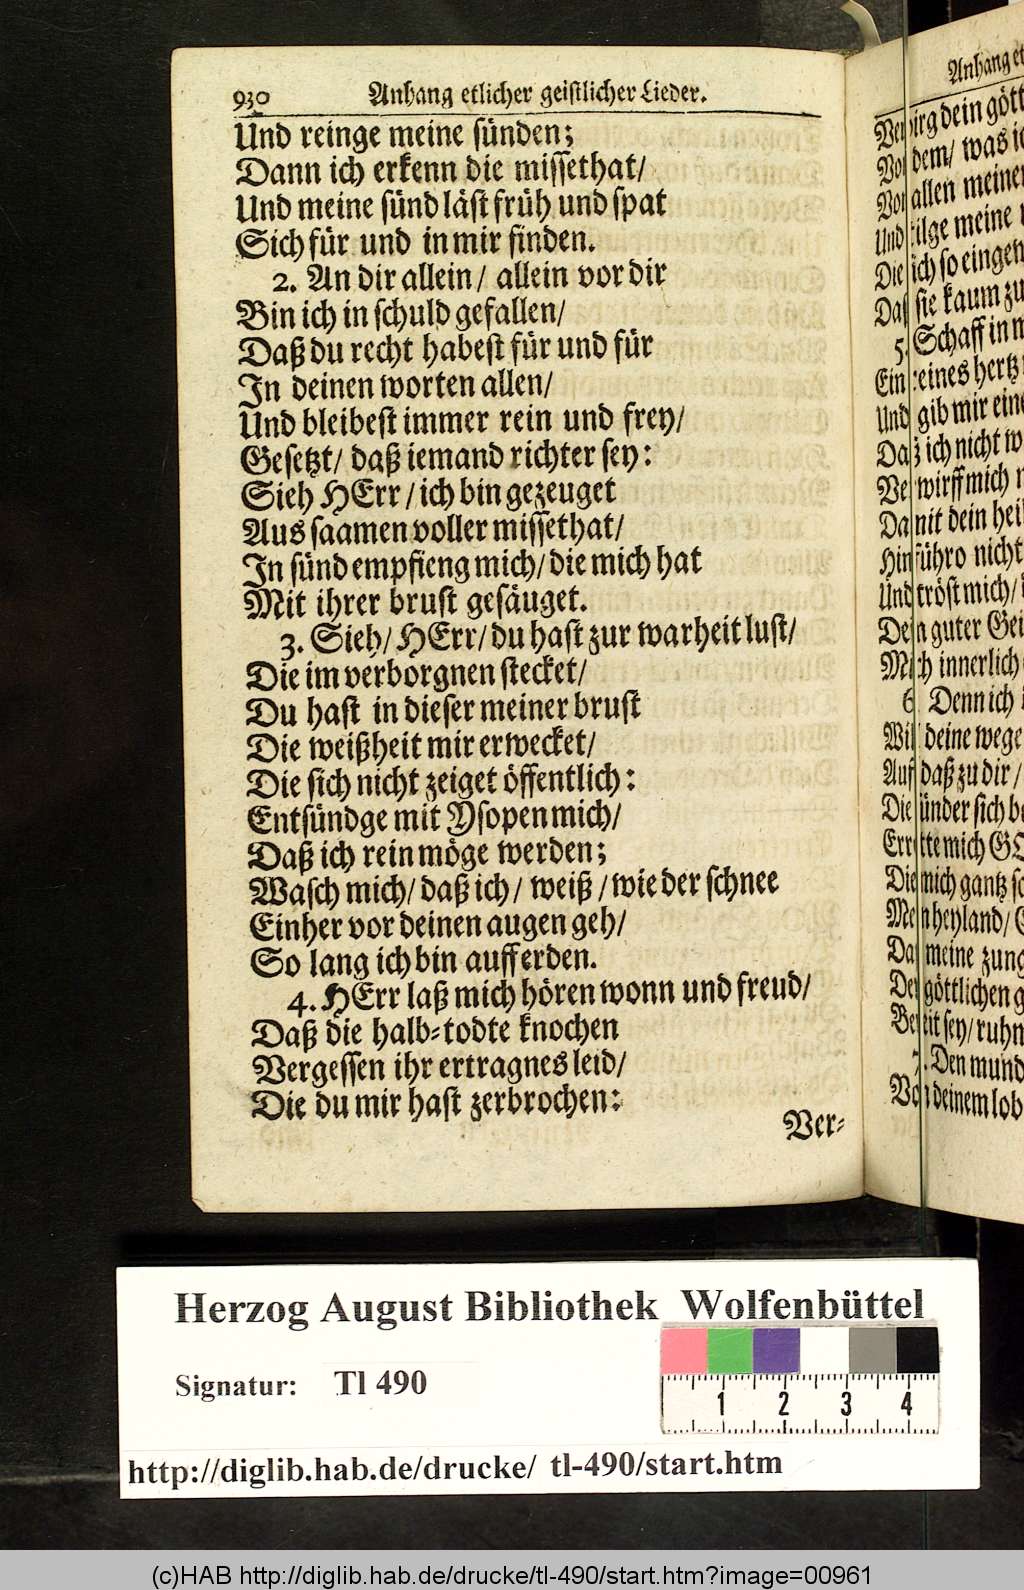 930 Anhang etlicher geistlicher Lieder.
Und reinge meine sünden;
Dann ich erkenn die missethat/
Und meine sünd läst früh und spat
Sich für und in mir finden.
2. An dir allein/ allein vor dir
Bin ich in schuld gefallen/
Daß du recht habest für und für
In deinen worten allen/
Und bleibest immer rein und frey/
Gesetzt/ daß iemand richter sey:
Sieh HErr/ ich bin gezeuget
Aus saamen voller missethat/
In sünd empfieng mich/ die mich hat
Mit ihrer brust gesäuget.
3. Sieh/ HErr/ du hast zur warheit lust/
Die im verborgnen stecket/
Du hast in dieser meiner brust
Die weißheit mir erwecket/
Die sich nicht zeiget öffentlich:
Entsündge mit Ysopen mich/
Daß ich rein möge werden;
Wasch mich/ daß ich/ weiß/ wie der schnee
Einher vor deinen augen geh/
So lang ich bin auff erden.
4. HErr laß mich hören wonn und freud/
Daß die halb-todte knochen
Vergessen ihr ertragnes leid/
Die du mir hast zerbrochen:
Ver-
Anhang et
dein gött
dem/ was ic
allen meiner
Und tilge meine
Die ich so eingen
Daß sie kaum zu
5. Schaff in
Ein reines hertz
Und gib mir eine
Daß ich nicht
Verwirff mich
Damit dein heil
Hinführo nicht
Und tröst mich/
Dein guter Gei
Mich innerlich
6. Denn ich
Will deine wege
Auf daß zu dir/
Die sünder sich
Errette mich GO
Die mich gantz
Mein heyland/
Daß meine zung
Der göttlichen
Bereit sey/ ruhn
7. Den mund
Von deinem lob
Herzog August Bibliothek Wolfenbüttel
Signatur: Tl 490
1 2 3 4
http://diglib.hab.de/drucke/ tl-490/start.htm
(c)HAB http://diglib.hab.de/drucke/tl-490/start.htm?image=00961